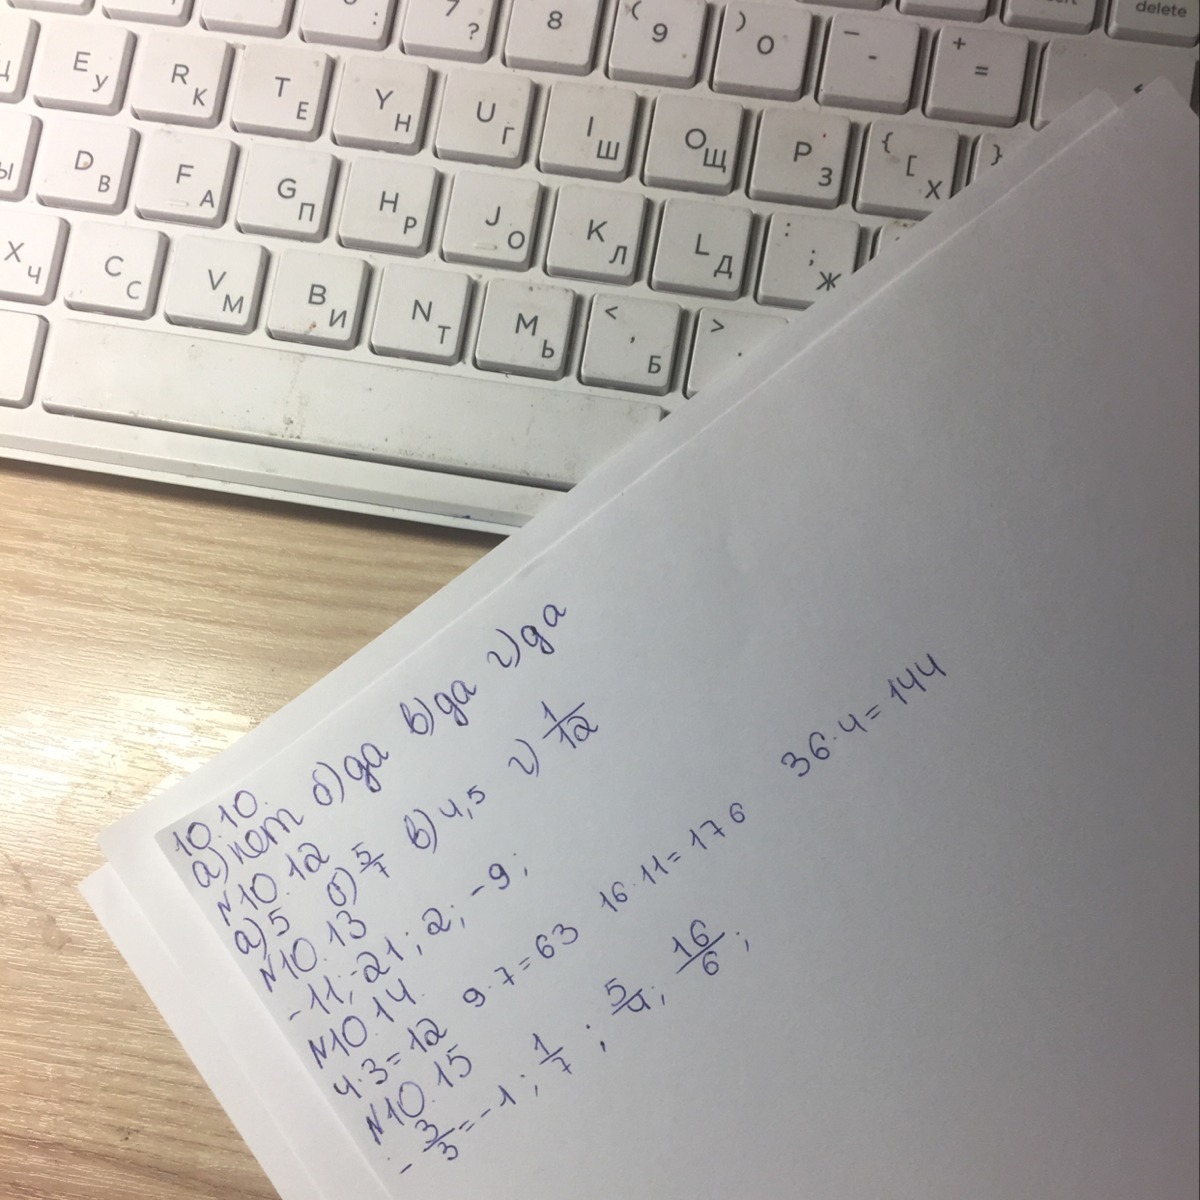 7 ? 8 ( 9 ) 0 — - + = delete
E У R К T Е Y Н U Г I Ш O Щ P З { [ Х }
Ы D В F А G П H Р J О K Л L Д : ; Ж
X Ч C С V М B И N Т M Ь < , Б > .
10.10.
а) нет б) да в) да г) да
№10.12
а) 5 б) 5/7 в) 4,5 г) 1/12
№10.13
-11; -21; 2; -9;
№10.14.
4·3=12 9·7=63 16·11=176 36·4=144
№10.15
-3/3=-1; 1/7; 5/4; 16/6;